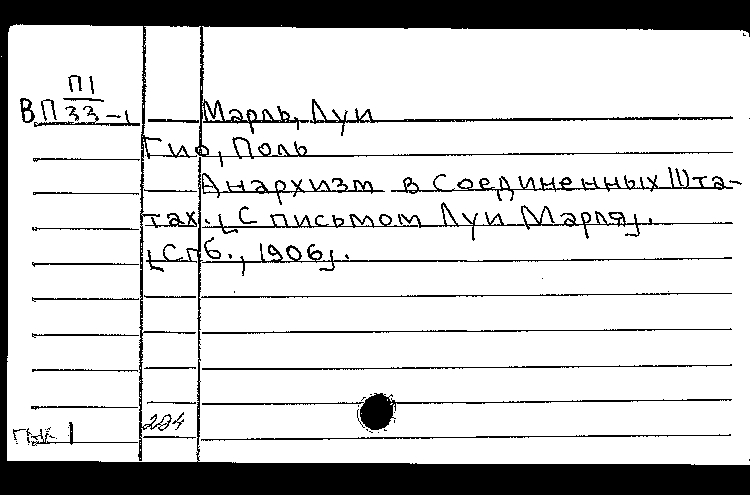 П1
ВП 33-1 Марль, Луи
Гио, Поль
Анархизм в Соединенных Шта-
тах. [С письмом Луи Марля].
[Спб., 1906].
204
1